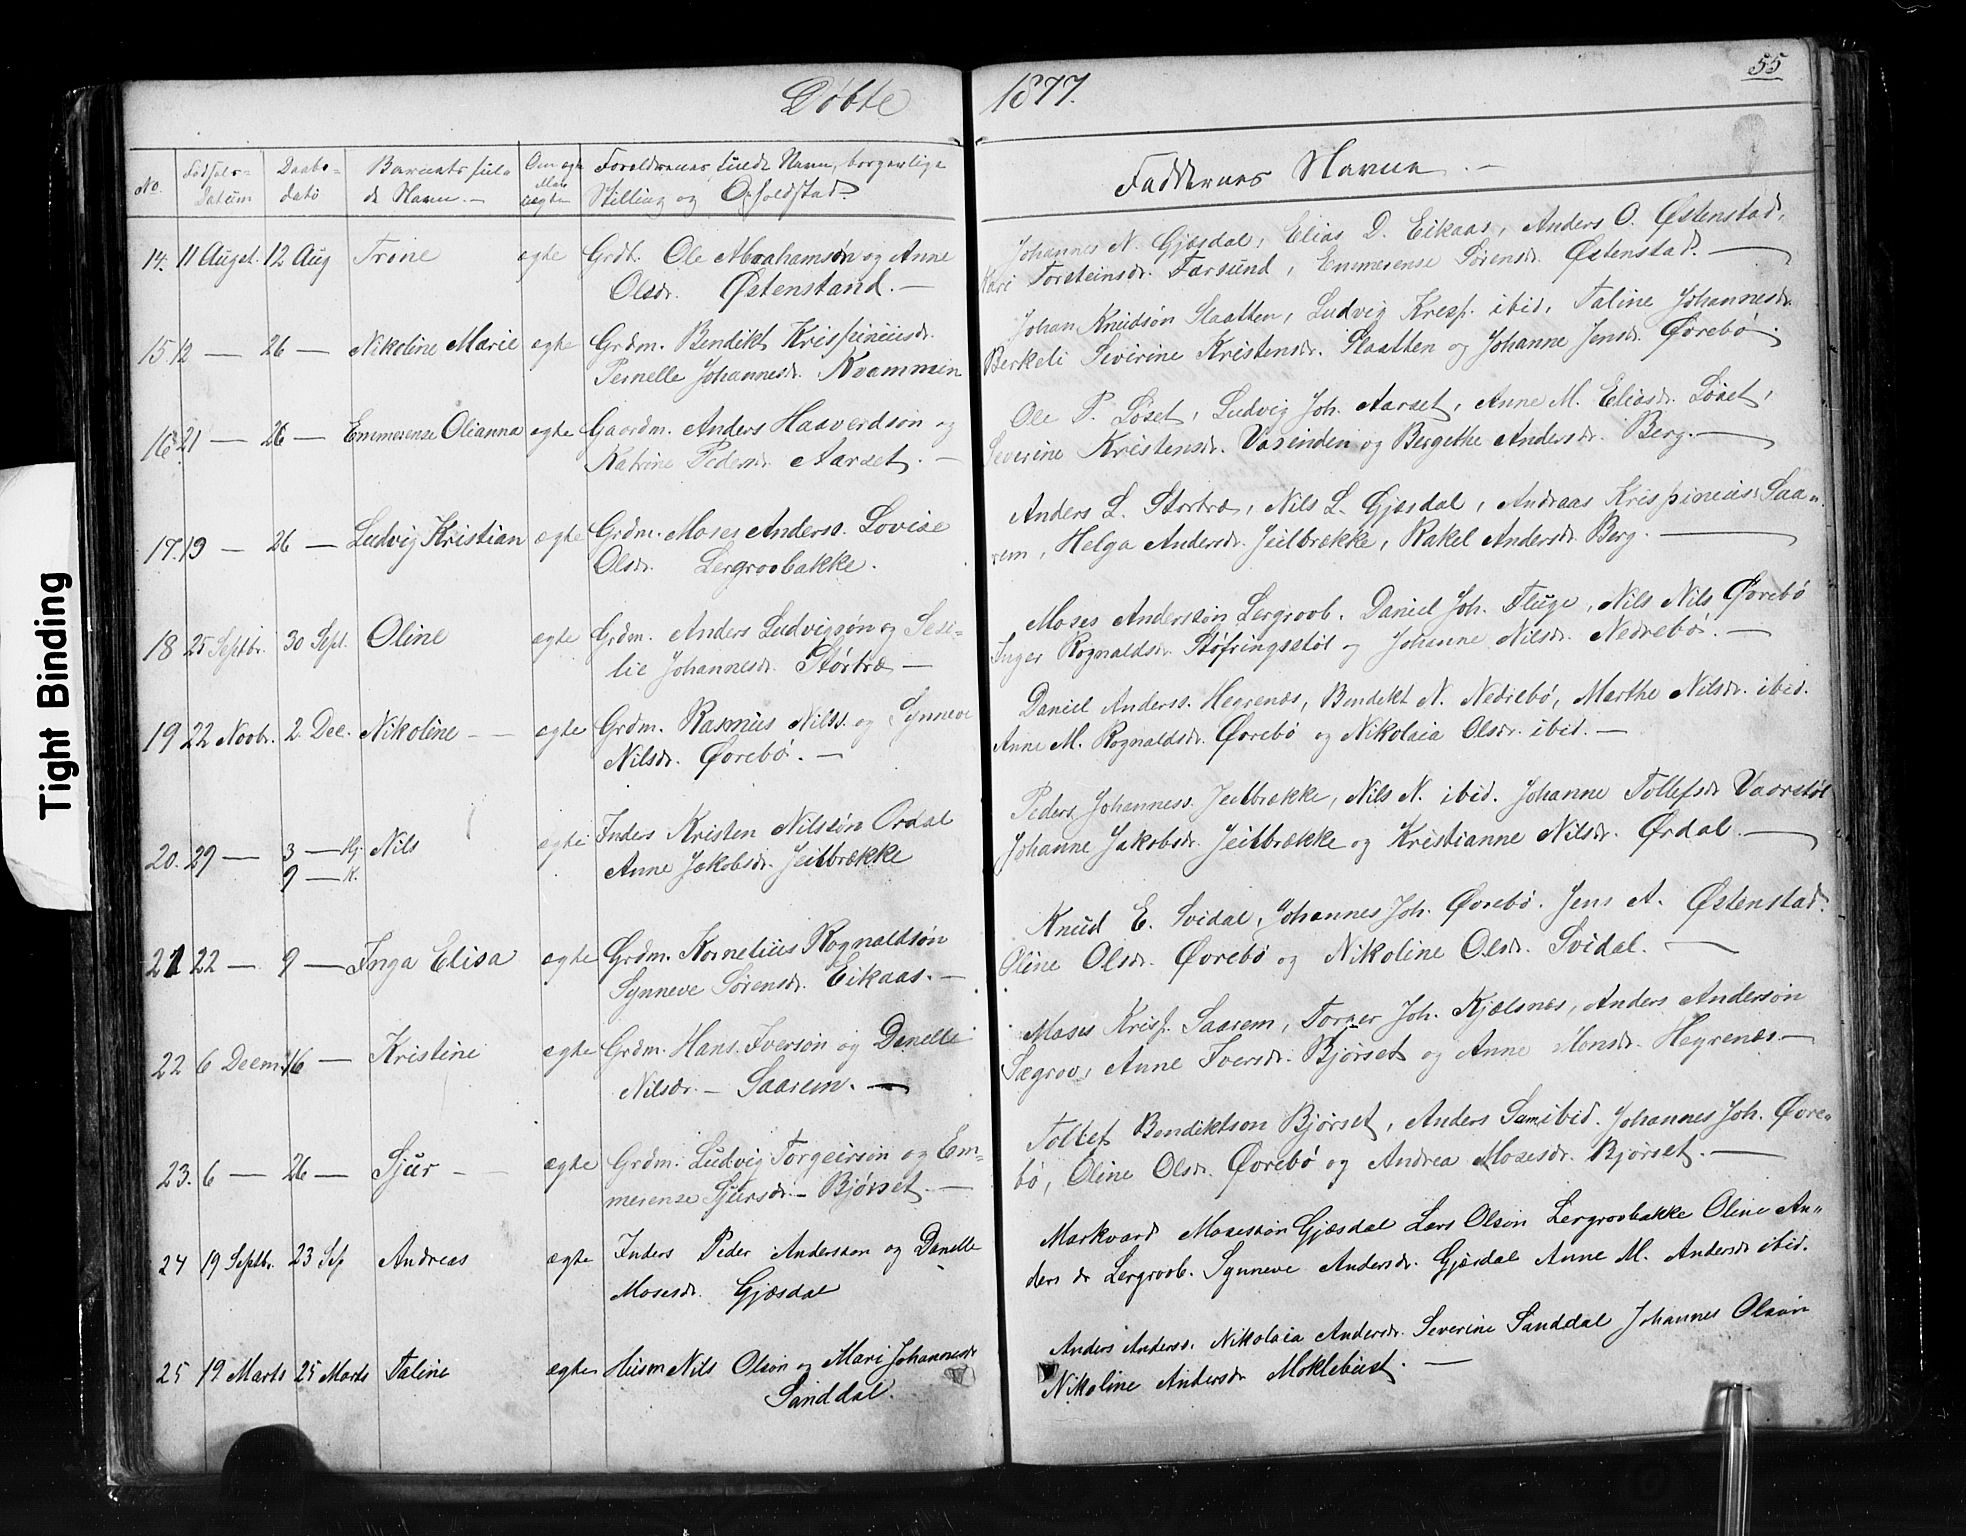 Døbte 1877.
55
No.
Fødsels-
Datum
Daabs-
dato
Barnets ful-
de Navn. -
Om ægte
eller
uægte
Forældrenes fulde Navn, borgerlige
Stilling og Opholdstad.
Faddernes Navne. -
14. 11 August. 12 Aug Trine ægte Grdt. Ole Abrahamsön og Anne
Olsdr. Østenstand. -
Johannes N. Gjæsdal, Elias D. Eikaas, Anders O. Østenstad,
Kari Torsteinsdr. Farsund, Emmerense Sørensdr. Østenstad. -
15. 12 - 26 - Nikoline Marie ægte Grdm. Bendikt Krispiniusdr.
Pernelle Johannesdr. Kvammen
Johan Knudsön Slaatten, Ludvig Kresp. ibid, Taline Johannesdr.
Berkeli Severine Kristensdr. Slaatten og Johanne Jensdr. Ørebø.
16. 21 - 26 - Emmerense Olianna ægte Gaardm. Anders Haaverdsøn og
Katrine Pedersdr. Aarset. -
Ole P. Løset, Ludvig Joh. Aarset, Anne M. Eliasdr. Løset,
Severine Kristensdr. Vasenden og Bergithe Andersdr. Berg. -
17. 19 - 26 - Ludvig Kristian ægte Grdm. Moses Anderss. Lovise
Olsdr. Lergrovbakke.
Anders L. Stortræ, Nils L. Gjæsdal, Andreas Krispinius Saa-
rem, Helga Andersdr. Jeilbrække, Rakel Andersdr. Berg. -
18 25 Septbr. 30 Sept. Oline ægte Grdm. Anders Ludvigsøn og Sesi-
lie Johannesdr. Stortræ -
Moses Andersson Lergroob. Daniel Joh. Fluge, Nils Nils Ørebö
Inger Rognaldsdr. Støfringsstøl og Johanne Nilsdr. Nedrebø. -
19 22 Novbr. 2 Dec. Nikoline - - ægte Grdm. Rasmus Nilss. og Synneve
Nilsdr. Ørebø. -
Daniel Anderss. Hegrenæs, Bendikt N. Nedrebø, Marthe Nilsdr. ibid.
Anne M. Rognaldsdr. Ørebø og Nikolaia Olsdr. ibid. -
20. 29 - 3 - Hj. Nils ægte Inders Kristen Nilssön Ordal
9 - K.
Anne Jakobsdr. Jeilbrække
Peders Johanness. Jeilbrække, Nils N. ibid. Johanne Tollefsdr Vaarstøl
Johanne Jakobsdr. Jeilbrække og Kristianne Nilsdr. Ørdal. -
21 22 - 9 - Inga Elisa ægte Grdm. Kornelius Rognaldsøn
Synneve Sørensdr. Eikaas. -
Knud E. Svidal, Johannes Joh. Ørebø. Jens A. Østenstad.
Oline Olsdr. Ørebø og Nikoline Olsdr. Svidal. -
22 6 Decem. 16 - Kristine ægte Grdm. Hans Iversøn og Danelle
Nilsdr. - Saarem. -
Moses Krisp. Saarem, Torger Joh. Kjælsnes, Anders Andersön
Sægrov, Anne Iversdr. Bjørset og Anne Monsdr. Hegrenæs -
23. 6 - 26 - Sjur - ægte Grdm. Ludvig Torgeirsøn og Em-
merense Sjursdr. - Bjørset. -
Tollef Bendiktson Bjørset, Anders Sam. ibid. Johannes Joh. Øre-
bø, Oline Olsdr. Ørebø og Andrea Mosesdr. Bjørset. -
24 19 Septbr. 23 Sep Andreas ægte Inders Peder Andersson og Danelle
Mosesdr. Gjæsdal
Markvard Mosessøn Gjæsdal Lars Olsøn Lergrovbakke Oline An-
ders dr Lergroob. Synneve Andersdr. Gjæsdal Anne M. Andersdr ibid.
25 19 Marts 25 Marts Taline ægte Husm Nils Olson og Mari Johannesdr
Sanddal.
Anders Anderss. Nikolaia Andersdr. Severine Sanddal Johannes Olsøn
Nikoline Andersdr Moklebust. -
Tight Binding